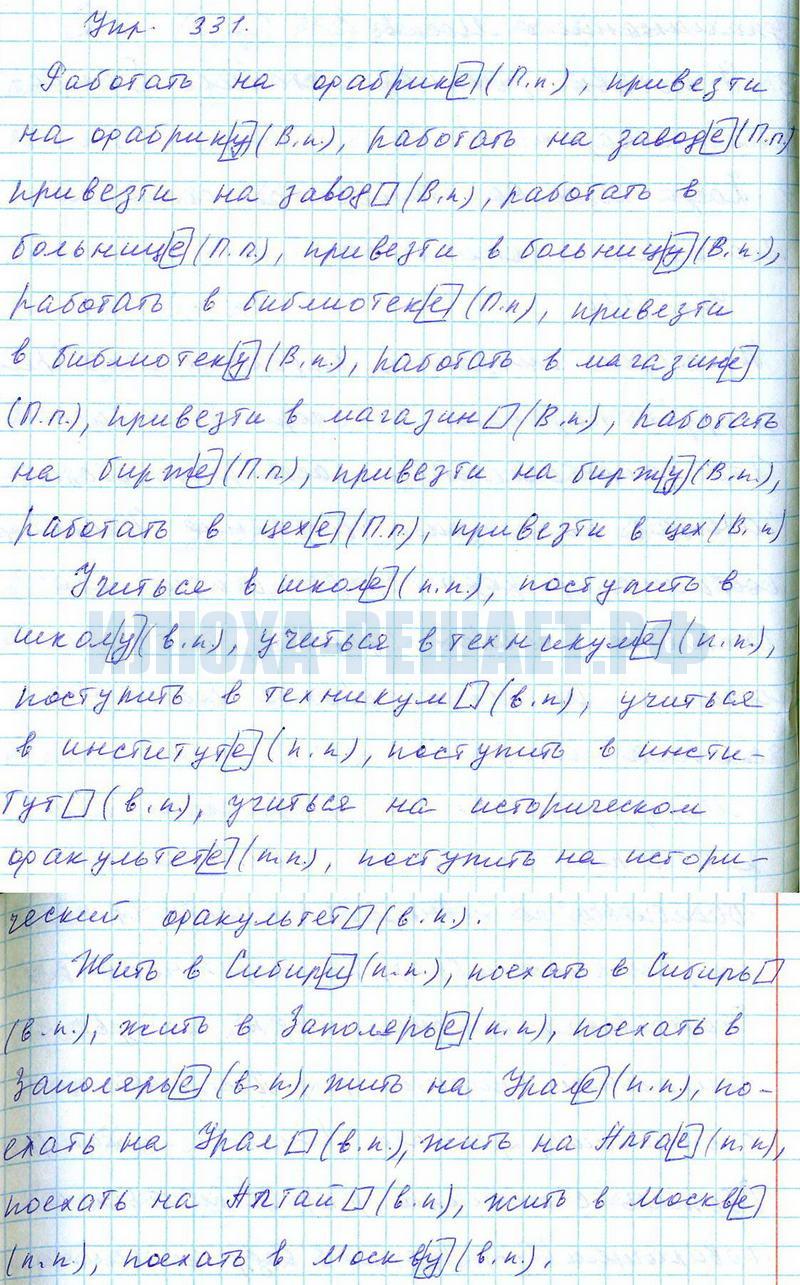 Упр. 331.
Работать на фабрике (П.п.), привезти
на фабрику (В.п.), работать на заводе (П.п.)
привезти на завод (В.п), работать в
больнице (П.п.), привезти в больницу (В.п.),
работать в библиотеке (П.п), привезти
в библиотеку (В.п.), работать в магазине
(П.п.), привезти в магазин (В.п.), работать
на бирже (П.п.), привезти на биржу (В.п.),
работать в цехе (П.п.), привезти в цех (В.п)
Учиться в школе (п.п.), поступить в
школу (в.п.), учиться в техникуме (п.п.),
ИЛЮХА-РЕШАЕТ.РФ
поступить в техникум (в.п), учиться
в институте (п.п), поступить в инсти-
тут (в.п.), учиться на историческом
факультете (п.п.), поступить на истори-
ческий факультет (в.п.).
Жить в Сибири (п.п.), поехать в Сибирь
(в.п.), жить в Заполярье (п.п), поехать в
Заполярье (в.п.), жить на Урале (п.п.), по-
ехать на Урал (в.п.), жить на Алтае (п.п),
поехать на Алтай (в.п), жить в Москве
(п.п.), поехать в Москву (в.п.).